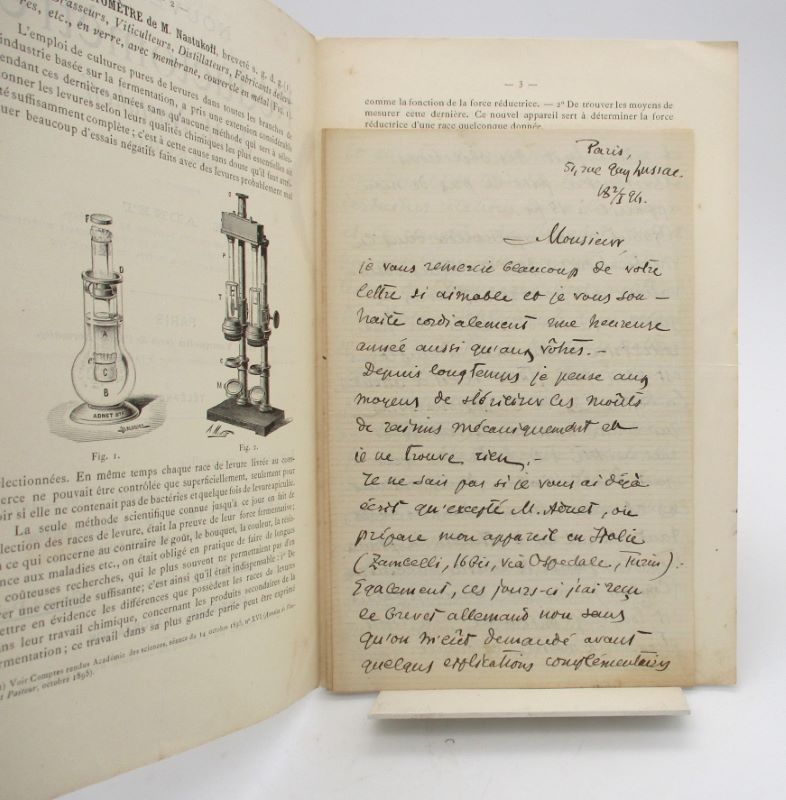 — 2 —
TOMÈTRE de M. Nastukoff, breveté s. g. d. g. (1),
Brasseurs, Viticulteurs, Distillateurs, Fabricants de levu-
res, etc., en verre, avec membrane, couvercle en métal (Fig. 1).
L'emploi de cultures pures de levures dans toutes les branches de
industrie basée sur la fermentation, a pris une extension considérable
endant ces dernières années sans qu'aucune méthode qui sert à sélec-
onner les levures selon leurs qualités chimiques les plus essentielles ait
té suffisamment complète ; c'est à cette cause sans doute qu'il faut attri-
uer beaucoup d'essais négatifs faits avec des levures probablement mal
F
D
A
C
B
ADNET
T
C
M
Fig. 1.
Fig. 2.
électionnées. En même temps chaque race de levure livrée au com-
erce ne pouvait être contrôlée que superficiellement, seulement pour
oir si elle ne contenait pas de bactéries et quelque fois de levure apiculée.
La seule méthode scientifique connue jusqu'à ce jour en fait de
lection des races de levure, était la preuve de leur force fermentative ;
n ce qui concerne au contraire le goût, le bouquet, la couleur, la résis-
ence aux maladies etc., on était obligé en pratique de faire de longues
coûteuses recherches, qui le plus souvent ne permettaient pas d'en
rer une certitude suffisante ; c'est ainsi qu'il était indispensable : 1° De
ettre en évidence les différences que possèdent les races de levures
ans leur travail chimique, concernant les produits secondaires de la
ermentation ; ce travail dans sa plus grande partie peut être exprimé
1) Voir Comptes rendus Académie des sciences, séance du 14 octobre 1895, n° XVI (Annales de l'Ins-
t Pasteur, octobre 1895).
— 3 —
comme la fonction de la force réductrice. — 2° De trouver les moyens de
mesurer cette dernière. Ce nouvel appareil sert à déterminer la force
réductrice d'une race quelconque donnée.
Paris,
rue Gay Lussac.
Monsieur,
je vous remercie beaucoup de votre
lettre si aimable et je vous sou-
haite cordialement une heureuse
année aussi qu'aux vôtres. —
Depuis longtemps je pense aux
moyens de stériliser les moûts
de raisins mécaniquement et
je ne trouve rien. —
Je ne sais pas si je vous ai déjà
écrit qu'excepté M. Adnet, on
prépare mon appareil en Italie
(Zamcelli, 16 bis, via Ospedale, Turin). —
Également, ces jours-ci j'ai reçu
le brevet allemand non sans
qu'on m'eût demandé avant
quelques explications complémentaires